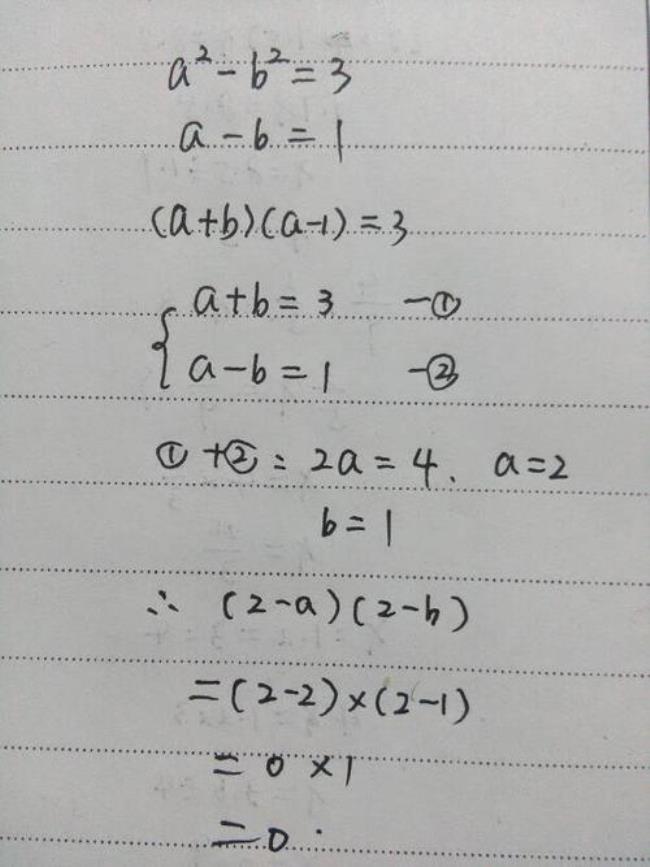 a²-b²=3
a-b=1
(a+b)(a-1)=3
a+b=3 -①
a-b=1 -②
①+②: 2a=4. a=2
b=1
∴ (2-a)(2-b)
=(2-2)×(2-1)
=0×1
=0.